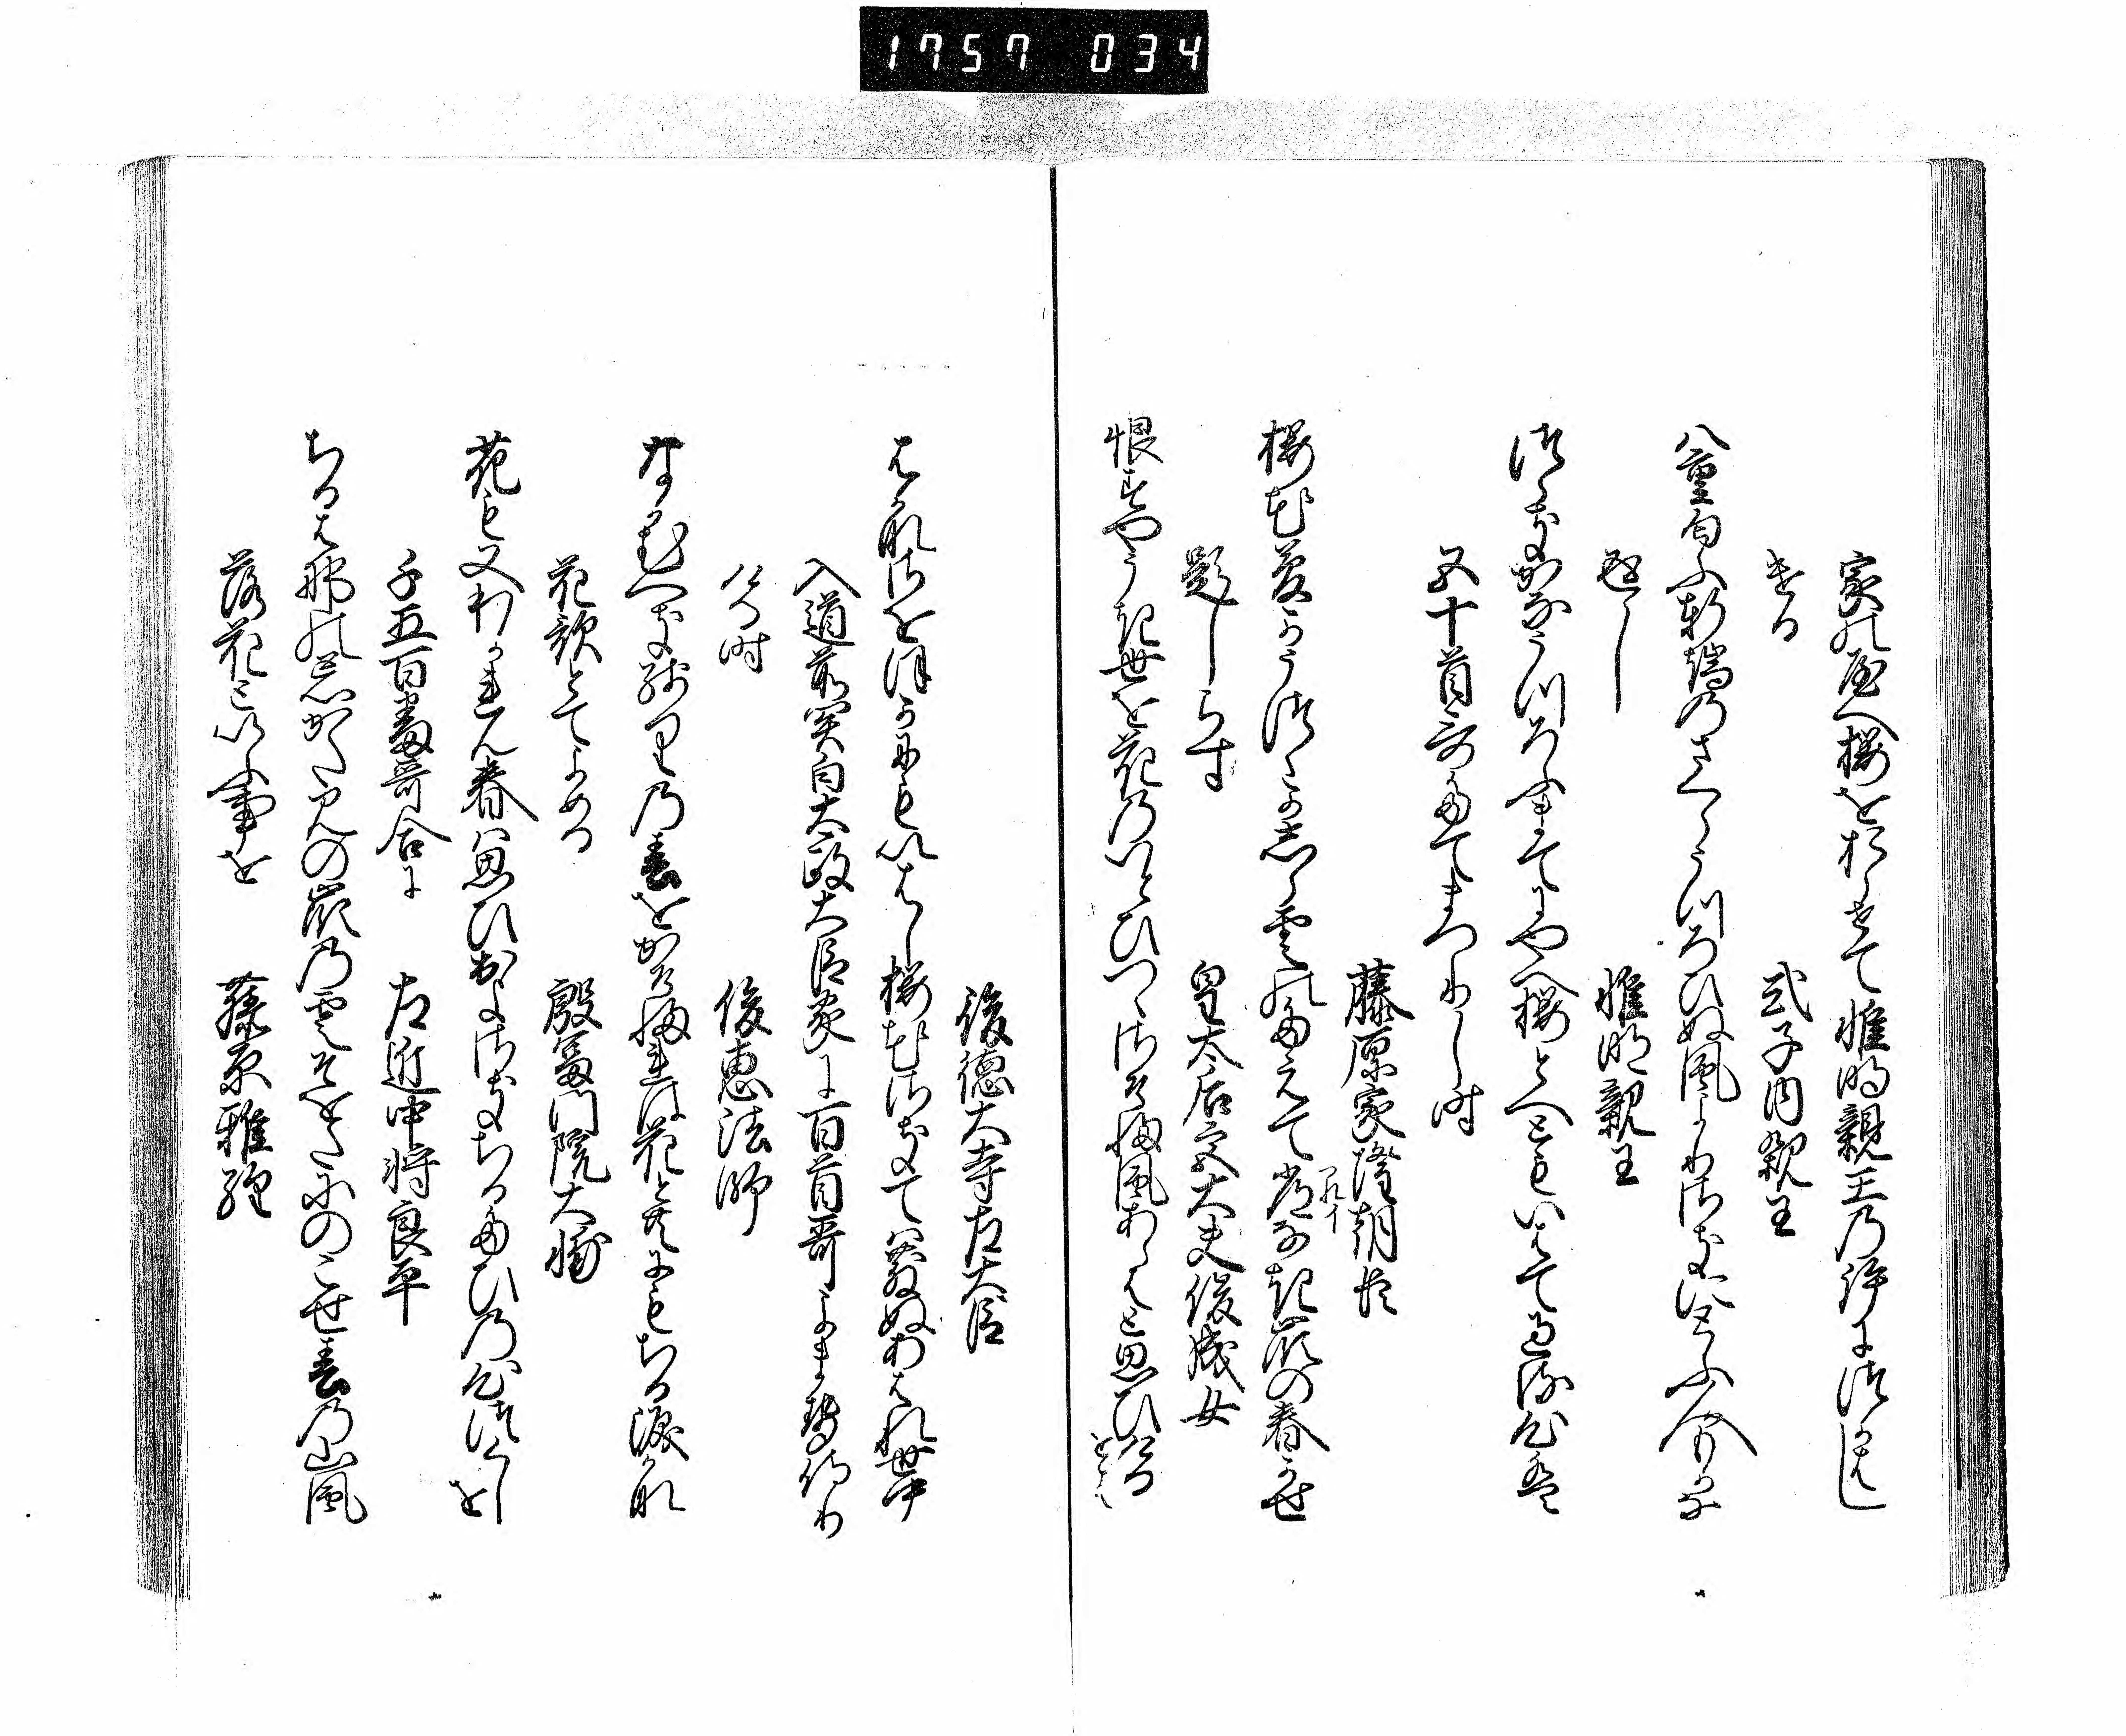 1757 034
家の八重桜を折らせて惟明親王の許につかはし
ける
式子内親王
八重匂ふ軒端のさくらうつろひぬ風よりさきにとふ人もかな
返し
惟明親王
つらきかなうつろふまてにや八重桜とへともいはて過る心は
五十首哥たてまつりし時
藤原家隆朝臣
桜花夢かうつゝか志ら雲のたえて常なき峯の春かせ
つれイ
題しらす
皇太后宮大夫俊成女
恨すやうき世を花のいとひつゝさそふ風あらはと思ひける
をは
後徳大寺左大臣
はかなさをほかにもいはし桜花さきては散ぬあはれ世中
入道前関白太政大臣家に百首哥よませ侍り
ける時
俊恵法師
なかむへき残りの春をかそふれは花とともにもちる涙かな
花哥とてよめる
殷冨門院大輔
花も又わかれん春は思ひ出よさきちるたひの心つくしを
千五百番哥合に
左近中将良平
ちるは那の忘かたみの峯の雲そをたにのこせ春の山風
落花といふ事を
藤原雅経